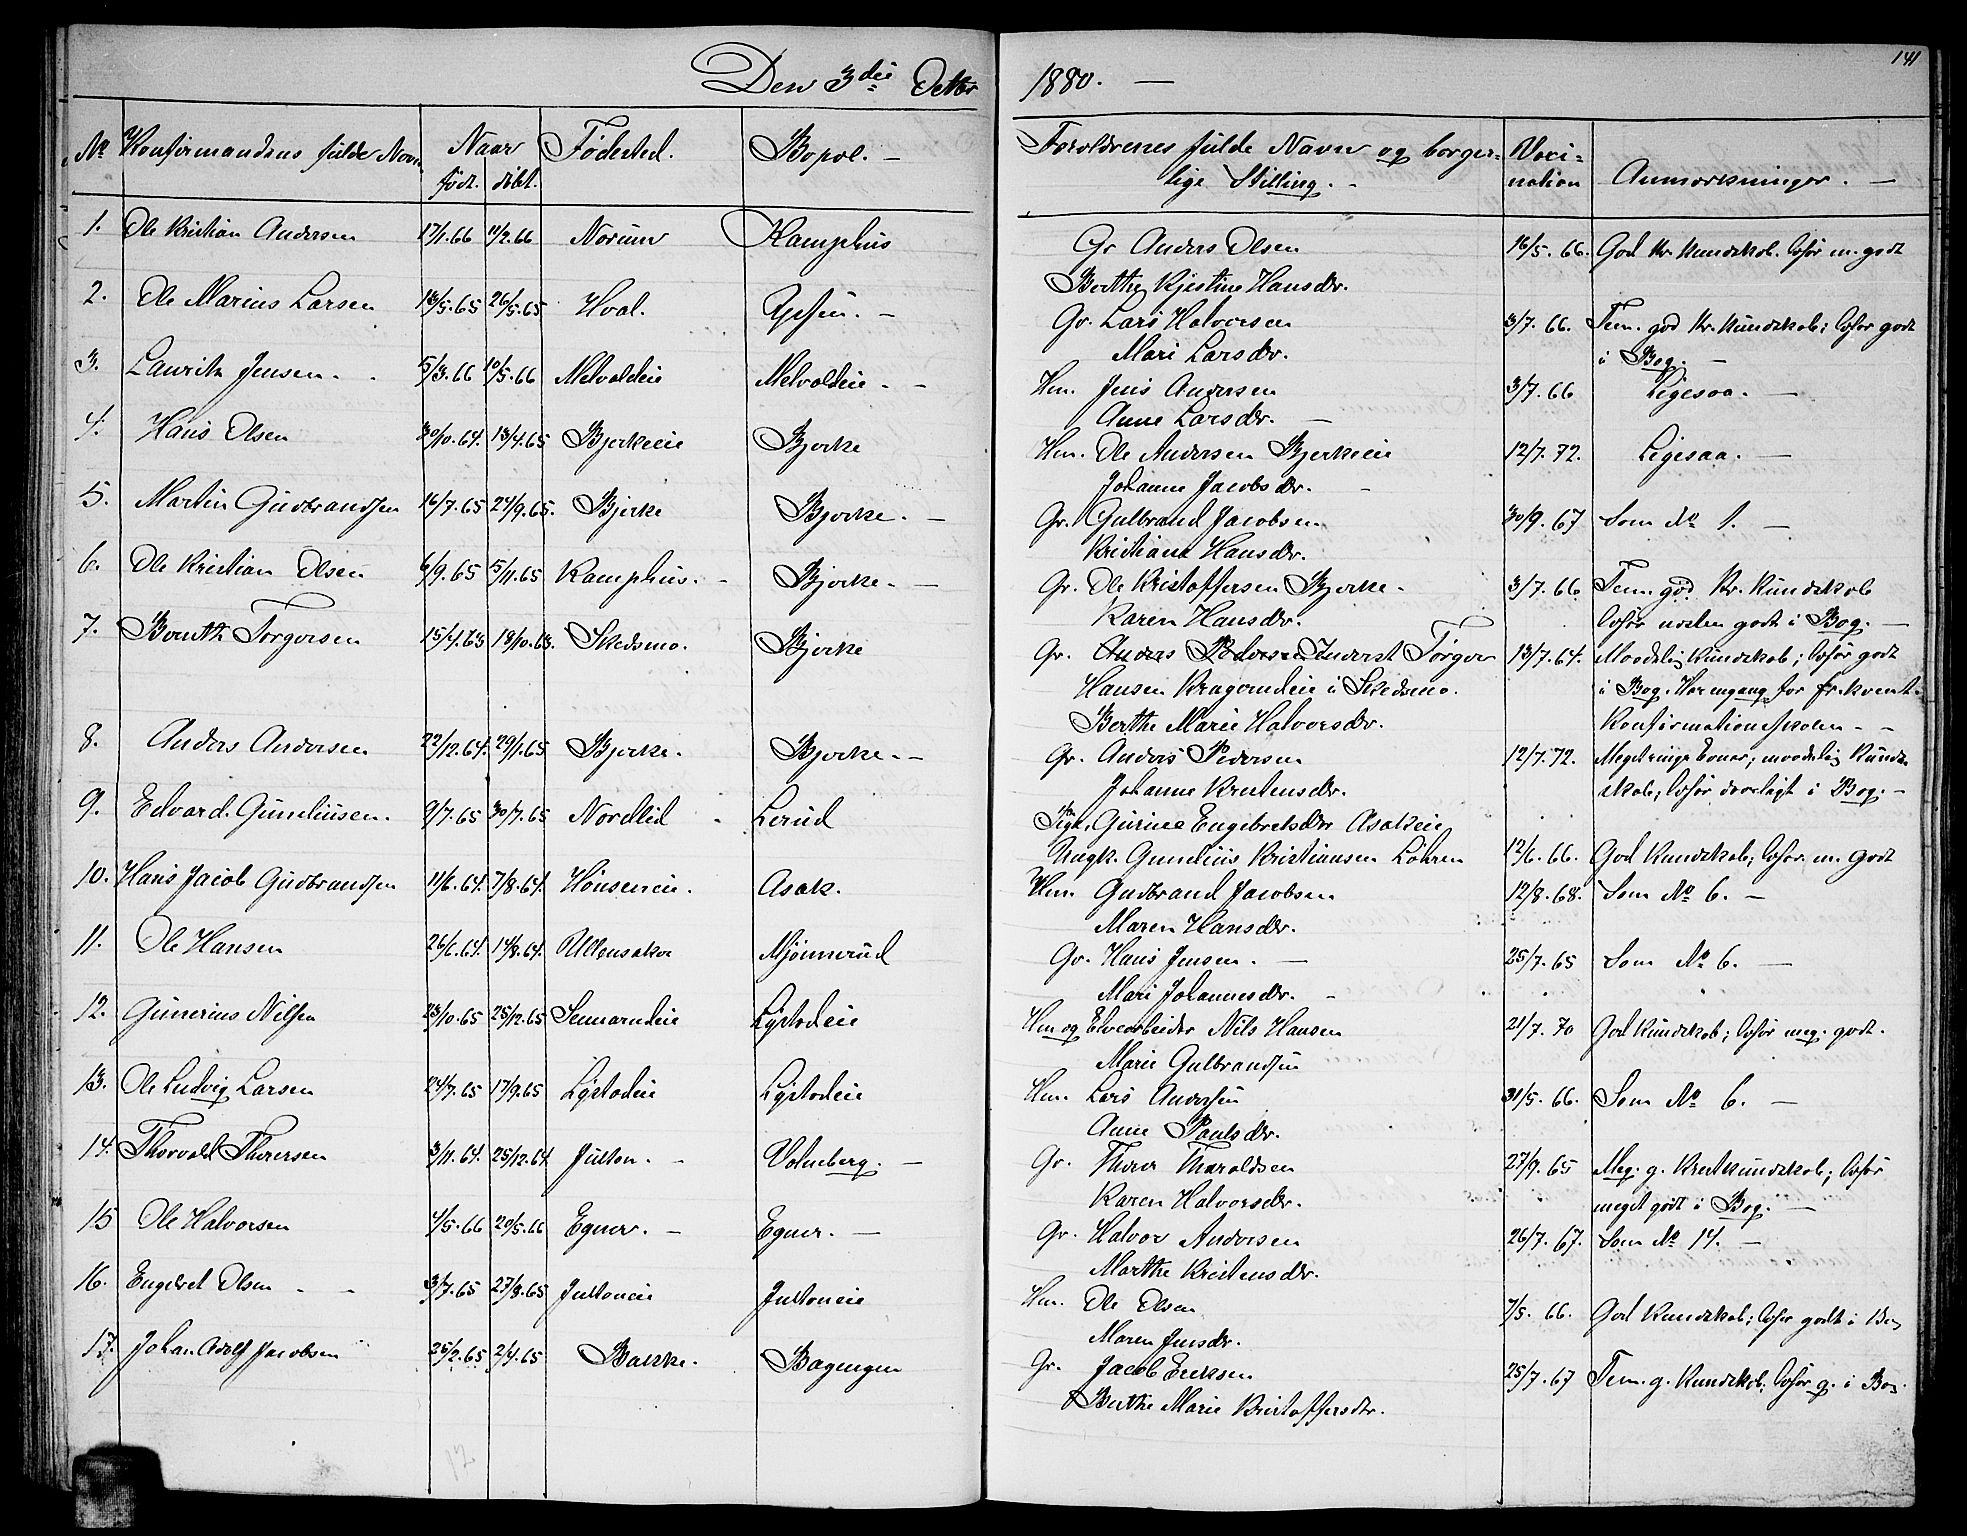 141
Den 3die Octbr 1880. —
No Konfirmandens fulde Navn Naar Fødested. Bopæl. — Forældrenes fulde Navn og borger- Vacci-
født. døbt. lige Stilling. — nation Anmærkninger. —
1. Ole Kristian Andersen 17/1.66 11/2.66 Norum Kamphus Gr Anders Olsen 16/5.66. God Kr. Kundskab. Opfør m. godt
Berthe Kjestine Hansdr.
2. Ole Marius Larsen 13/5.65 26/5.65 Hval. Gr. Lars Halvorsen 3/7.66. Tem. god Kr. Kundskab; Opfør godt
Mari Larsdr. i Bog. —
3. Lauritz Jensen. 5/3.66 10/5.66 Melvoldeie Melvoldeie. Hm. Jens Andersen 3/7.66 Ligesaa. —
Anne Larsdr. —
4. Hans Olsen 30/10.64. 13/4.65 Bjerkeeie Bjerke Hm. Ole Andersen Bjerkeeie 12/7.72. Ligesaa. —
Johanne Jacobsdr.
5. Martin Gudbrandsen 16/7.65 24/9.65. Bjerke Bjerke. — Gr. Gulbrand Jacobsen 30/9.67 Som No 1. —
Kristiane Hansdr.
6. Ole Kristian Olsen 6/9.65 5/11.65 Kamphus. Bjerke. — Gr. Ole Kristoffersen Bjerke. 3/7.66. Tem. god Kr. Kundskab
Karen Hansdr. Opfør næsten godt i Bog. —
7. Bernth Torgersen 15/4.63 18/10.63. Skedsmo. Bjerke Gr. Anders Pedersen Inderst Torger 13/7.64. Maadelig Kundskab; Opfør godt
Hansen Kragerudeie i Skedsmo. i Bog. Har engang før frekvent.
Berthe Marie Halvorsdr. Konfirmationsskolen. —
8. Anders Andersen 22/12.64. 29/1.65 Bjerke. Bjerke. — Gr. Anders Pedersen 12/7.72. Meget ringe Evner; maadelig Kund-
Johanne Kristensdr. skab; Opfør daarligt i Bog. —
9. Edvard Guneliusen. 9/7.65 30/7.65 Nordlid Lerud Pige. Gurine Engebretsdr Asakeie
Ungk. Gunelius Kristiansen Løhren 12/6.66. God Kundskab; Opfør. m. godt
10. Hans Jacob Gudbrandsen 11/6.64. 7/8.64. Hønseneie. Asak. Hm. Gudbrand Jacobsen 12/8.68. Som No 6. —
Maren Hansdr.
11. Ole Hansen 26/6.64. 14/8.64. Ullensaker Mjønnerud Gr. Hans Jensen. — 25/7.65 Som No 6. —
Mari Johannesdr. —
12. Gunerius Nilsen 23/10.65 25/12.65 Lystadeie Hm og Elvearbeider Nils Hansen 21/7.70 God Kundskab; Opfør meg. godt.
Marie Gulbrandsen
13. Ole Ludvig Larsen 24/7.65 17/9.65 Lystadeie Lystadeie Hm. Lars Andersen 31/5.66. Som No 6. —
Anne Paulsdr.
14. Thorvald Thoresen 3/11.64. 25/12.64 Julton. — Valneberg. — Gr. Thore Tharaldsen 27/9.65 Meg. g. Kristkundskab; Opfør
Karen Halvorsdr. meget godt i Bog. —
15 Ole Halvorsen 4/5.66 20/5.66 Egner. — Egner. — Gr. Halvor Andersen 26/7.67. Som No 14. —
Marthe Kristensdr.
16. Engebret Olsen 3/7.65 27/8.65 Jultoneie Jultoneie Hm. Ole Olsen 7/5.66. God Kundskab; Opfør godt i Bog
Maren Jensdr.
17. Johan Adolf Jacobsen 25/2.65 2/4.65 Bakke. Gr. Jacob Eriksen 25/7.67 Tem. g. Kundskab; Opfør g. i Bog.
Berthe Marie Kristoffersdr.
12